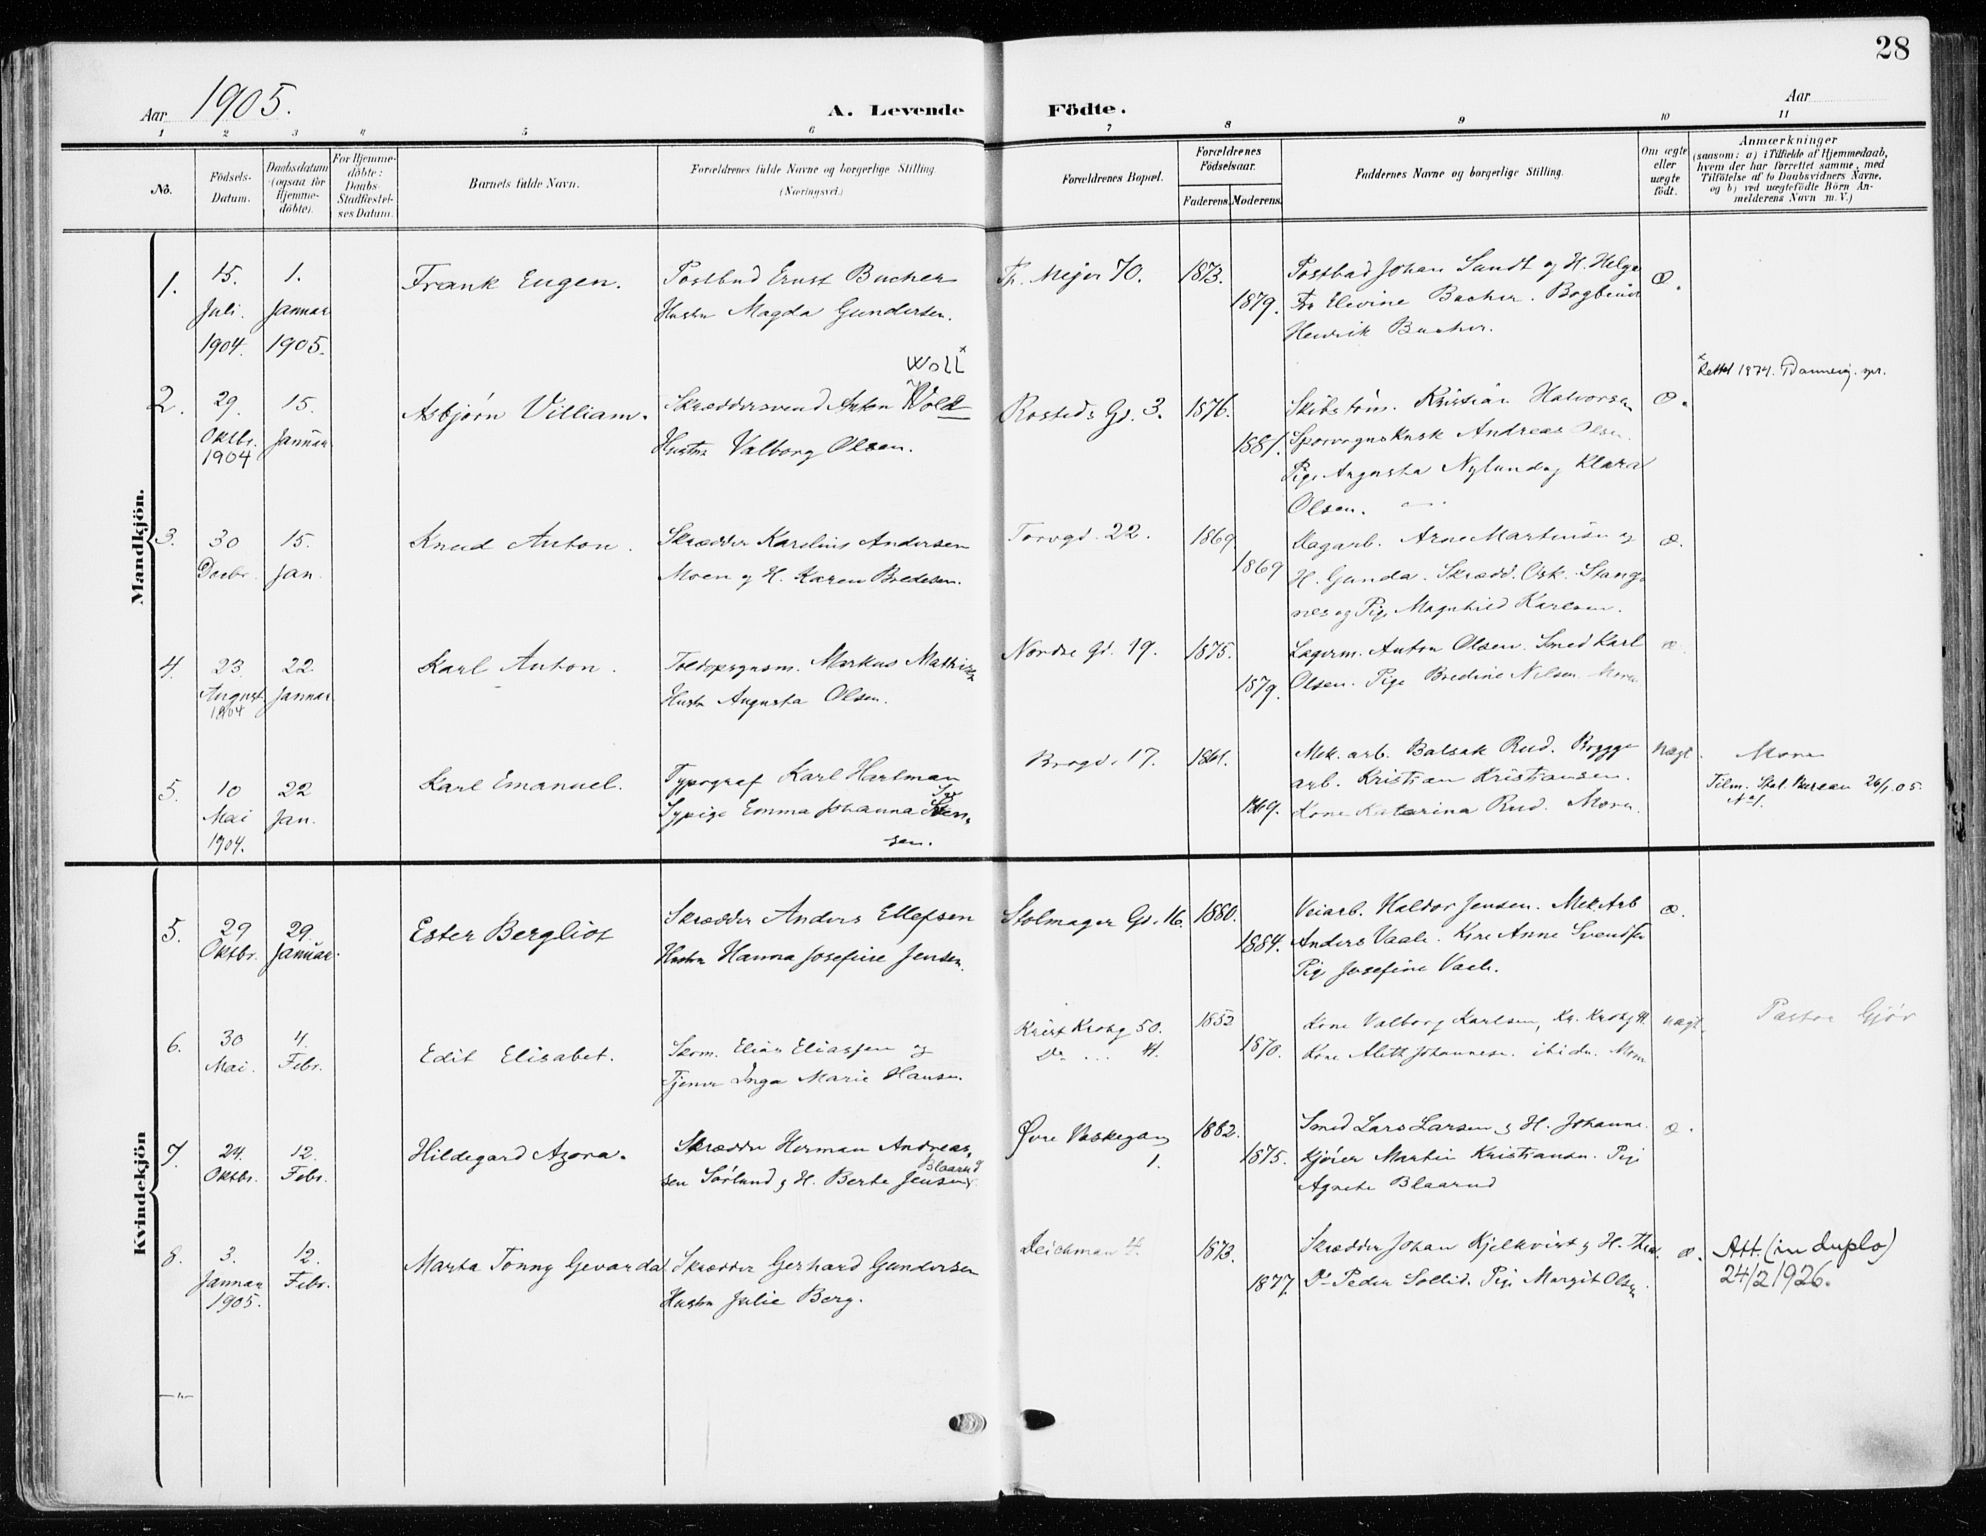 28
Aar 1905.
A. Levende Födte.
Aar
1 2 3 4 5 6 7 8 9 10 11
No.
Födsels-Datum.
Daabsdatum (ogsaa for Hjemme-döbte).
For Hjemme-döbte: Daabs-Stadfæstel-ses Datum.
Barnets fulde Navn.
Forældrenes fulde Navne og borgerlige Stilling (Næringsvei.)
Forældrenes Bopæl.
Forældrenes Födselsaar.
Faderens. Moderens.
Faddernes Navne og borgerlige Stilling.
Om ægte eller uægte født.
Anmærkninger
(saasom: a) i Tilfælde af Hjemmedaab,
hvem der har forrettet samme, med
Tilföielse af to Daabsvidners Navne,
og b) ved uægtefödte Börn An-
melderens Navn m. V.)
Mandkjön.
1. 15. Juli. 1904. 1. Januar 1905.
Frank Eugen.
Postbud Ernst Bucher
Hustru Magda Gundersen.
Th. Mejer 70.
1873. 1879.
Postbud Johan Sundt og H. Helga
Fr Elevine Bucher. Bogbinder
Henrik Bucher.
æ.
2. 29. Oktbr. 1904 15. Januar
Asbjørn Villiam.
Woll x
Skræddersvend Anton Wold
Hustru Valborg Olsen.
Rosteds Gd. 3.
1876. 1881.
Skibstøm. Kristian Halvorsen
Sporvognskusk Andreas Olsen.
Pige Augusta Nylund og Klara
Olsen.
æ.
x Rettet 1974. Dannevig. spr.
3. 30 Decbr. 15. Jan.
Knud Anton.
Skrædder Karelius Andersen
Moen og H. Karen Bredesen.
Torvgd. 22.
1869. 1869
Dagarb. Arne Martinsen og
H. Gunda. Skrædd. Osk. Stange
nes og Pige Magnhild Karlsen.
æ.
4. 23. August 1904 22. Januar
Karl Anton.
Toldopsynsm. Markus Mathisen
Hustr Augusta Olsen.
Nordre Gd. 19.
1875. 1879.
Lagerm. Anton Olsen. Smed Karl
Olsen. Pige Bredine Nilsen. Moren
æ.
5. 10 Mai 1904. 22 Jan.
Karl Emanuel.
Typograf Karl Hartman
Sypige Emma Johanna
sen.
Brogd. 17.
1861. 1869.
Mek. arb. Balsak Rud. Brygge
arb. Kristian Kristiansen.
Kone Katarina Rud. Moren.
uægt.
Moren
Tilm. Stat. Bureau 26/1.05.
Kvindekjön
5. 29 Oktbr. 29. Januar.
Ester Bergliot
Skrædder Anders Ellefsen
Hustru Hanna Josefine Jensen.
Stolmager Gd. 16.
1880. 1884.
Veiarb. Haldor Jensen. Mek Arb
Anders Vaale. Kone Anne Svendsen
Pige Josefine Vaale.
æ.
6. 30 Mai. 4. Febr.
Edit Elisabet.
Skom. Elias Eliassen og
Tjener Inga Marie Hansen.
Krist Krohg 50.
Do ... 4.
1852 1870.
Kone Valborg Karlsen, Kr. Krohg 4.
Kone Aleth Johannesen. ibidn. Moren
uægt.
Pastor Gjør
7. 24. Oktbr. 12. Febr.
Hildegard Azora.
Skrædder Herman Andreas-
Blaarud
sen Sørlund og H. Berte Jensen
Øvre Vaskegang
1.
1882. 1875.
Smed Lars Larsen og H. Johanne.
Kjører Martin Kristiansen. Pige
Agnete Blaarud
æ.
8. 3. Januar 1905. 12. Febr.
Marta Tonny Gevarda
Skrædder Gerhard Gundersen
Hustru Julie Berg.
Deichman 4.
1873. 1877.
Skrædder Johan Kjelkvist og H. Thea.
Do Peder Sollid. Pige Margit Olsen
æ.
Att. (in duplo)
24/2 1926.